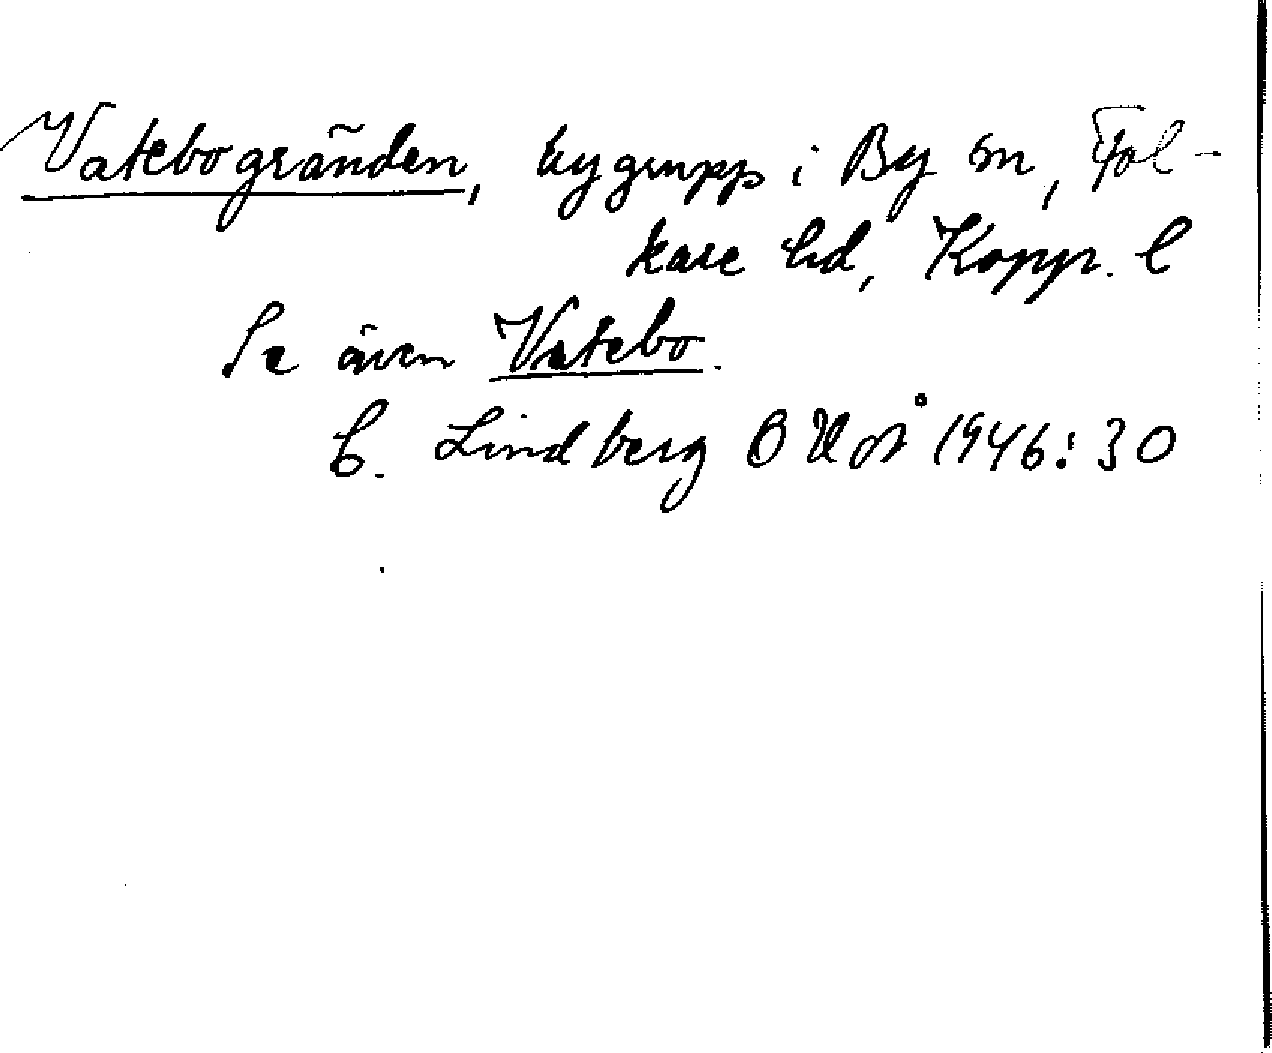 Vatebogränden, bygrupp i By sn, Fol-
kare hd, Kopp. l
Se även Vatebo.
C. Lindberg 1946: 30